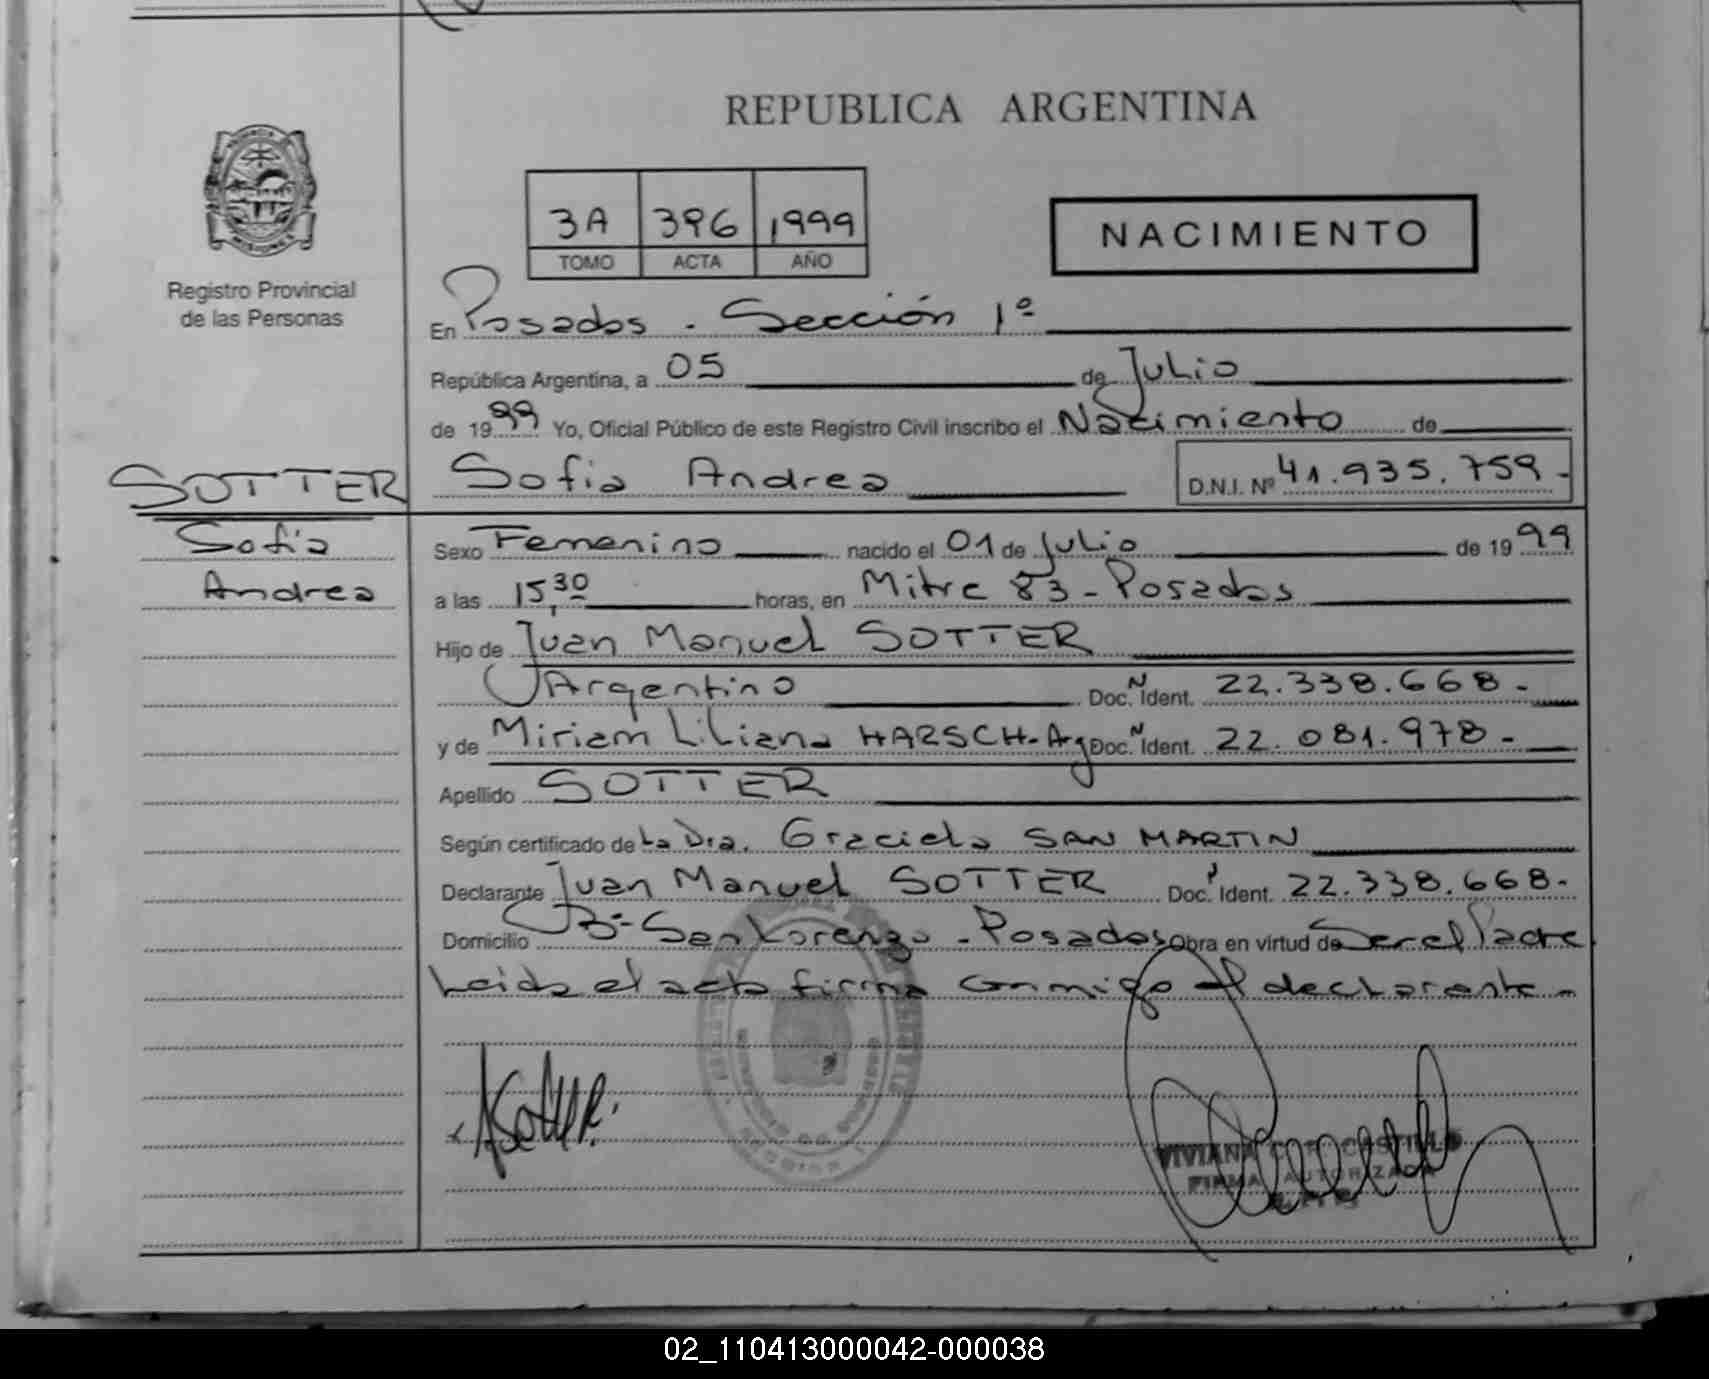 REPUBLICA ARGENTINA
3A 396 1999
TOMO ACTA AÑO
NACIMIENTO
Registro Provincial
de las Personas
En Posadas - Sección 1ª
República Argentina, a 05 de Julio
de 1999 Yo, Oficial Público de este Registro Civil inscribo el Nacimiento de
SOTTER
Sofia Andrea D.N.I. Nº 41.935.759-
Sofia
Andrea
Sexo Femenino nacido el 01 de Julio de 1999
a las 15,30 horas, en Mitre 83 - Posadas
Hijo de Juan Manuel SOTTER
Argentino Doc. N Ident. 22.338.668-
y de Miriam Liliana HARSCH-Arg Doc. N Ident. 22.081.978-
Apellido SOTTER
Según certificado de La Dra. Graciela SAN MARTIN
Declarante Juan Manuel SOTTER Doc. Ident. 22.338.668-
Domicilio Bº San Lorenzo - Posadas Obra en virtud de Ser el Padre
Leida el acta firma conmigo el declarante -
Sotter
VIVIANA CASTILLO
FIRMA AUTORIZADA
02_110413000042-000038